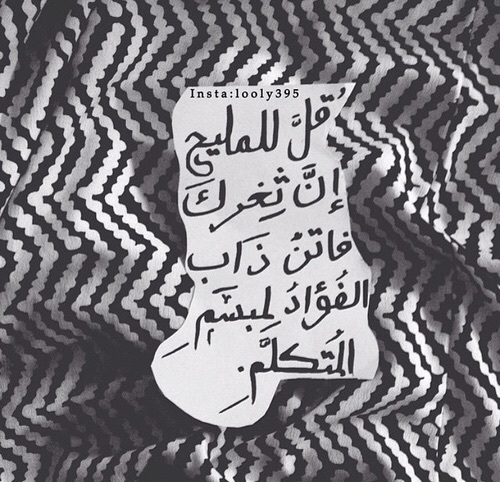 Insta:looly395
قُلَّ للمليح
إنَّ ثِغركَ
فاتنُ ذَاب
الفُؤادُ لمِبسَمِ
المُتكلَّمِ.